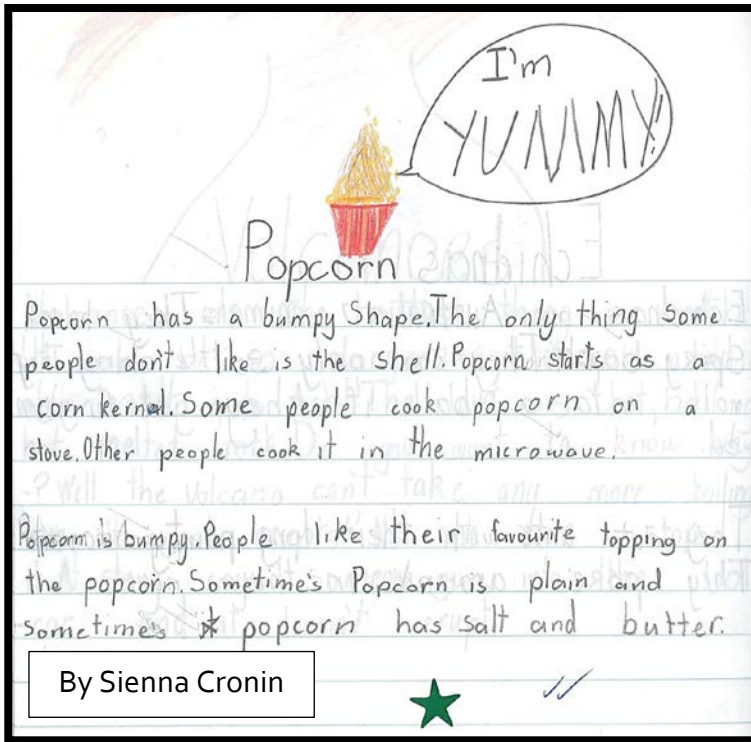 I'm
YUMMY!!
Popcorn
Popcorn has a bumpy Shape. The only thing Some
people don't like is the shell. Popcorn starts as a
corn kernal. Some people cook popcorn on a
stove. Other people cook it in the microwave.
-? Well the volcano can't take any more
Popcorn is bumpy. People like their favourite topping on
the popcorn. Sometime's Popcorn is plain and
sometime's popcorn has salt and butter.
By Sienna Cronin